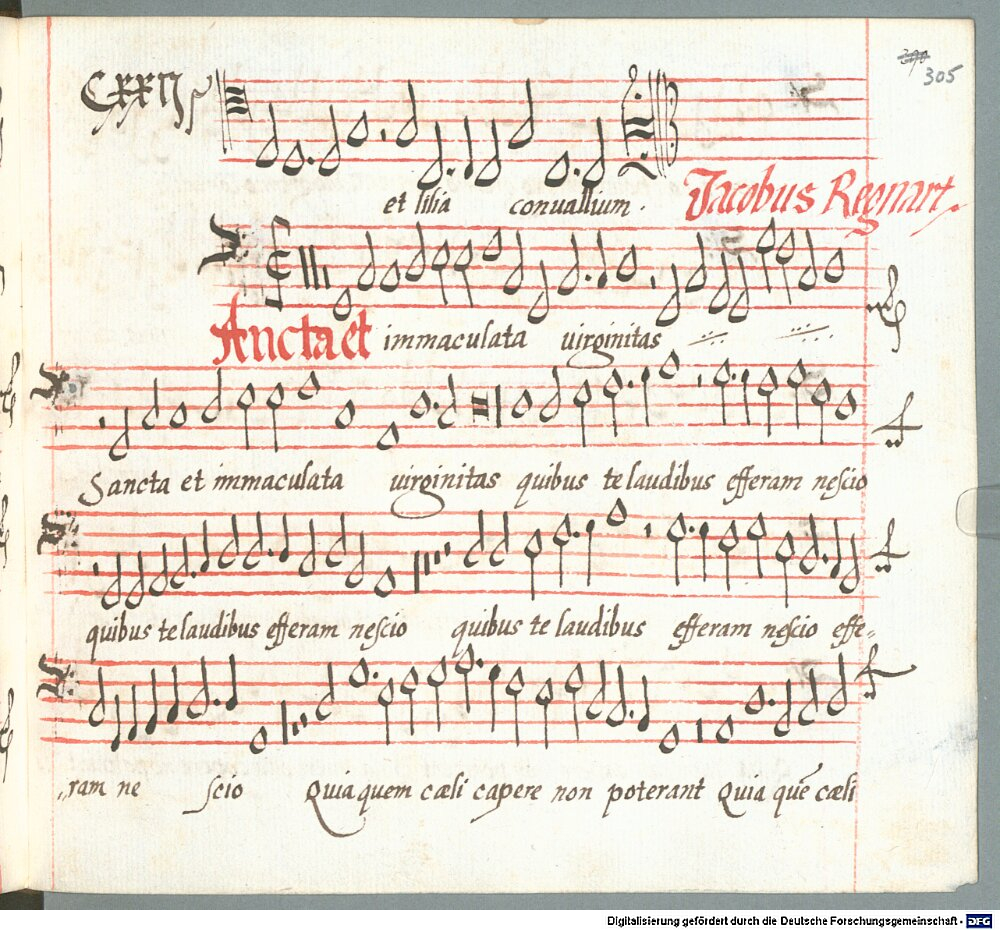 305
CXXII
et lilia conuallium.
Jacobus Regnart.
Ancta et immaculata uirginitas
Sancta et immaculata uirginitas quibus te laudibus efferam nescio
quibus te laudibus efferam nescio quibus te laudibus efferam nescio effe=
„ram ne scio Quia quem cæli capere non poterant Quia quē cæli
Digitalisierung gefördert durch die Deutsche Forschungsgemeinschaft - DFG